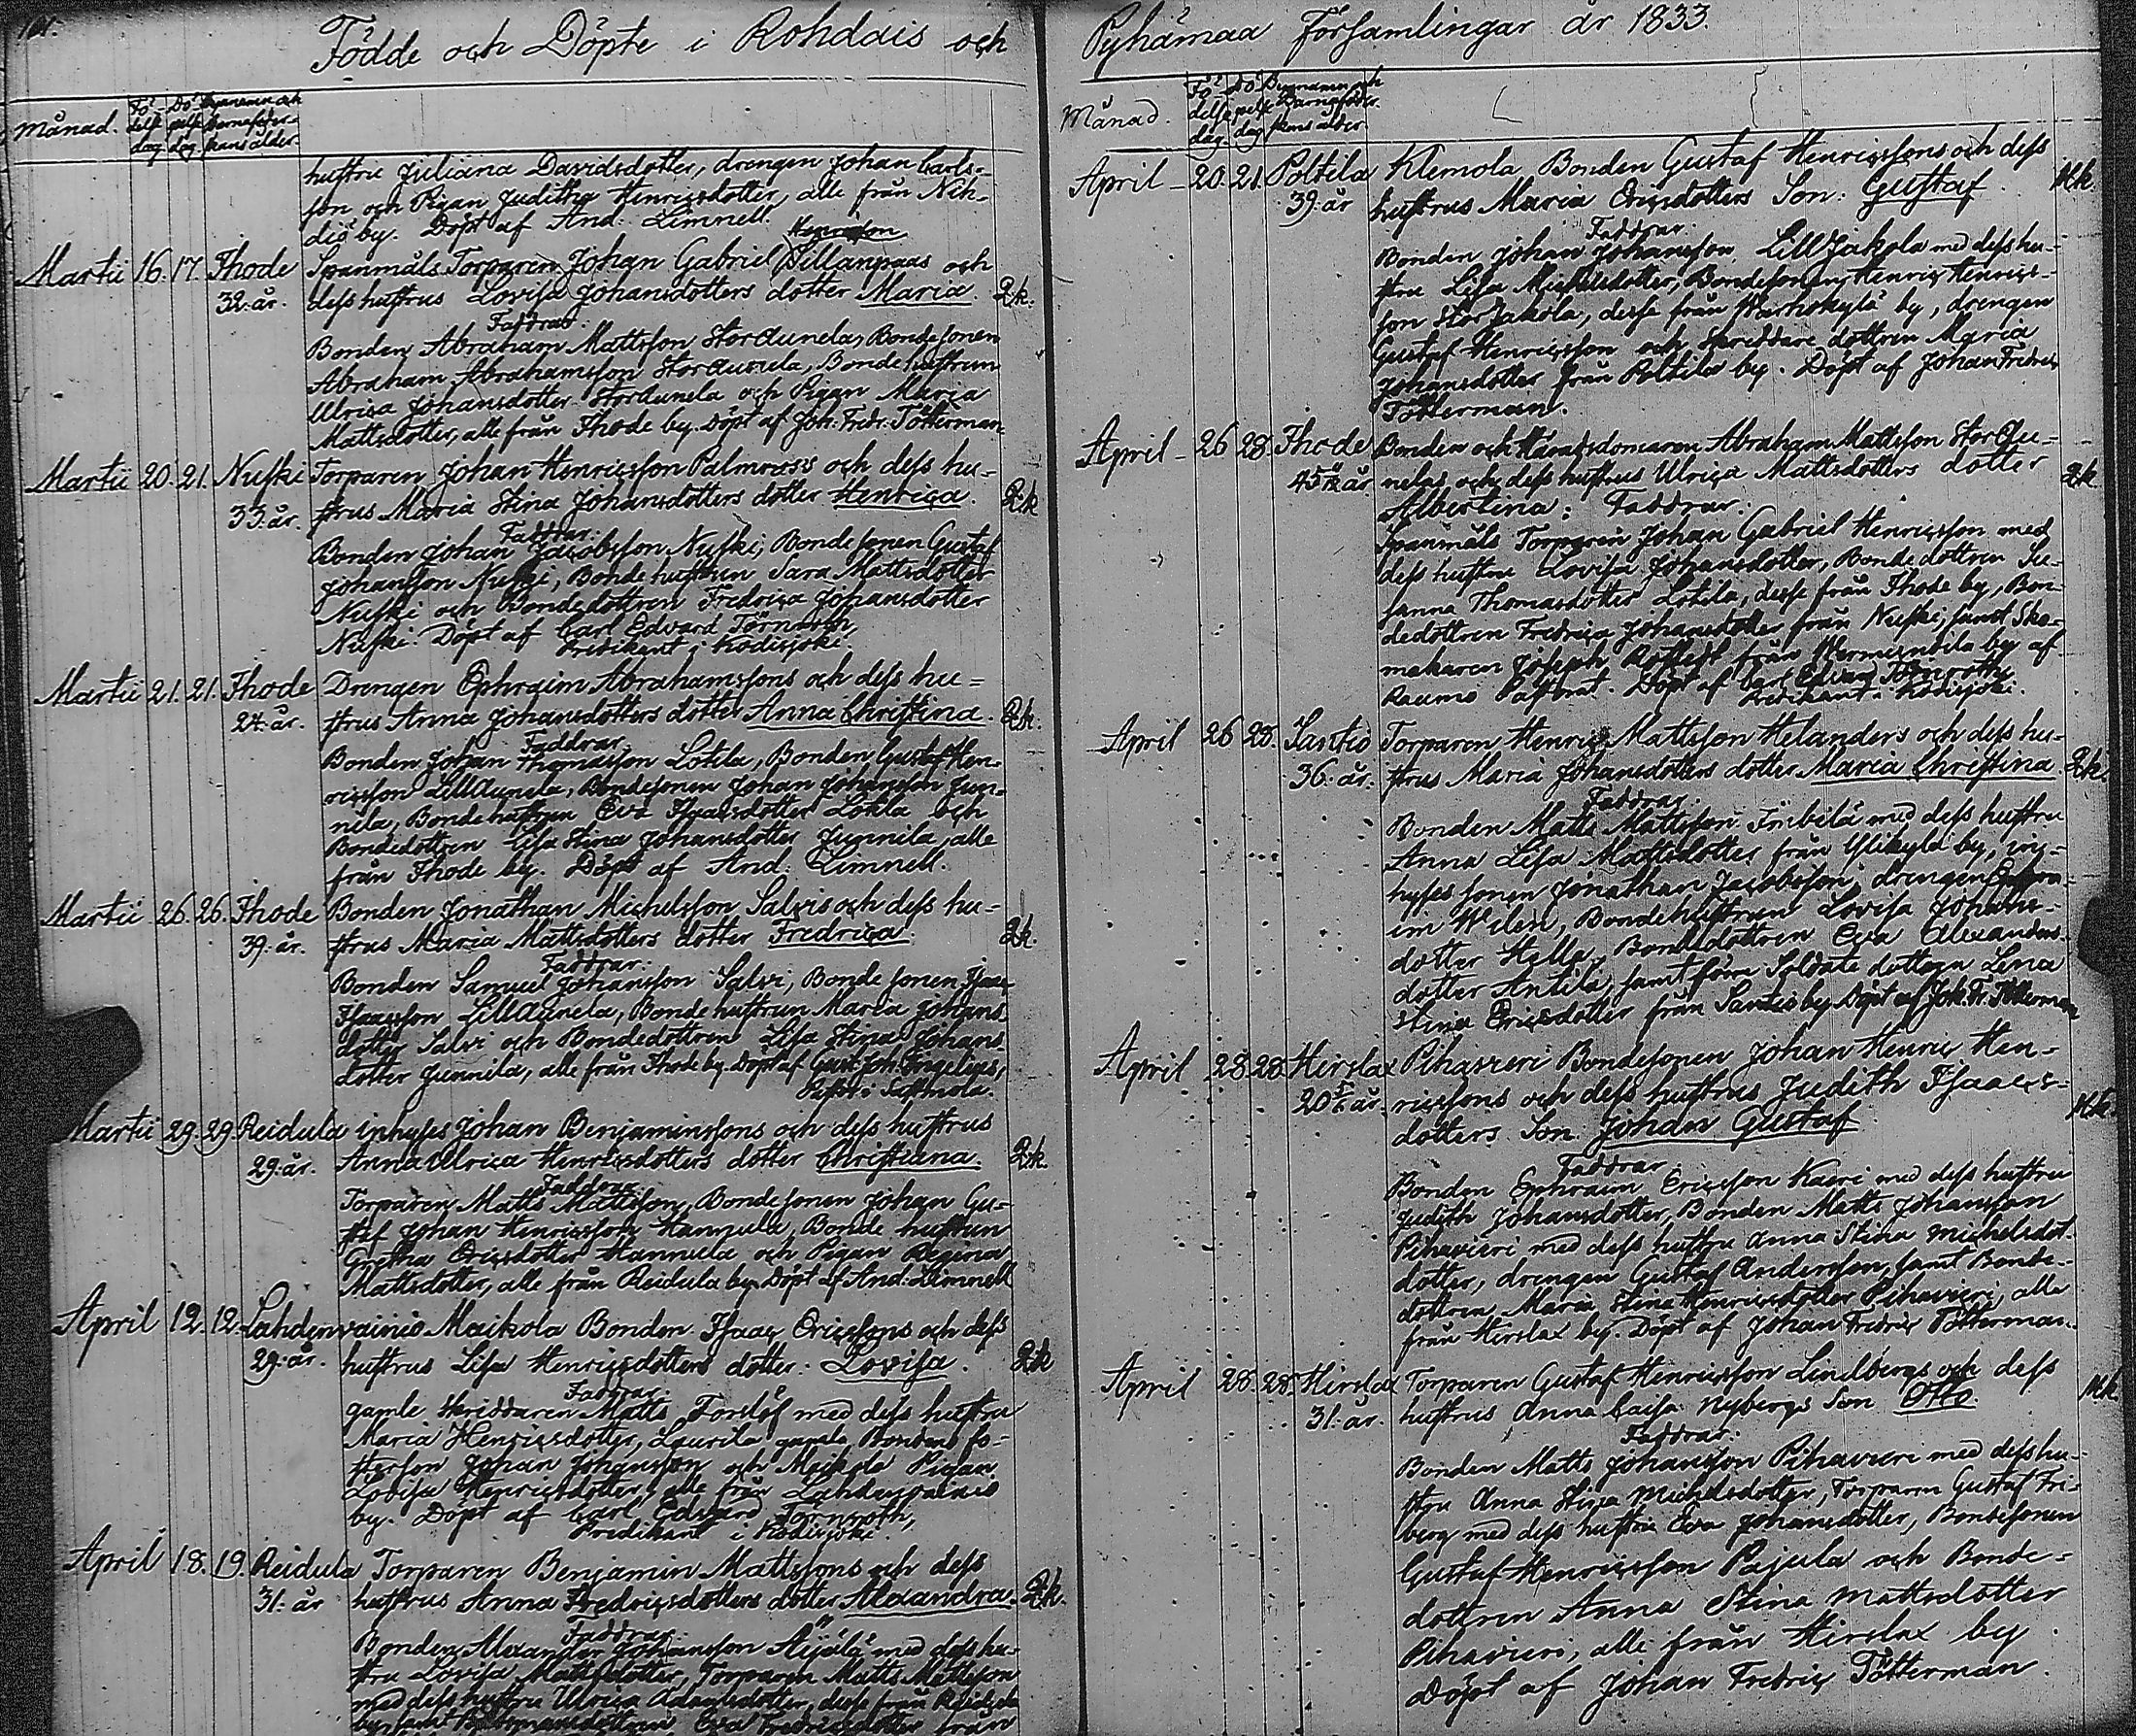 Födde och Döpte i Rohdais och
Månad. Fö- delse dag. Dö- pelse dag. Bynamen och Barnaföder- skans ålder.
hustru Juliana Davidsdotter, drengen Johan Carls-
son och Pigan Juditha Henricsdotter, alle från Nih-
diö by. Döpt af And: Limnell.
Henricsson
Martii 16. 17. Ihode Spanmåls Torparen Johan Gabriel Sillanpääs och
32. år. dess hustrus Lovisa Johansdotters dotter Maria. Q.k.
Faddrar.
Bonden Abraham Mattsson StorAunela, Bondesonen
Abraham Abrahamsson StorAunela, Bondehustrun
Ulrica Johansdotter StorAunela och Pigan Maria
Mattsdotter, alle från Ihode by. Döpt af Joh. Fredr. Tötterman.
Martii 20. 21. Nuski Torparen Johan Henricsson Palmroos och dess hu-
33. år. strus Maria Stina Johansdotters dotter Henrica. Q.k
Faddrar:
Bonden Johan Jacobsson Nuski, Bondesonen Gustaf
Johansson Nuski, Bondehustrun Sara Mattsdotter
Nuski och Bondedottren Fredrica Johansdotter
Nuski. Döpt af Carl Edvard Törnroth,
Predikant i Kodisjoki.
Martii 21. 21. Ihode Drengen Ephraim Abrahamssons och dess hu-
24. år. strus Anna Johansdotters dotter Anna Christina. Q.k.
Faddrar
Bonden Johan Thomasson Lotila, Bonden Gustaf Hen-
ricsson LillAunela, Bondesonen Johan Johansson Jun-
nila, Bondehustrun Eva Isaacsdotter Lotila och
Bondedottren Lisa Stina Johansdotter Junnila, alle
från Ihode by. Döpt af And: Limnell.
Martii 26. 26. Ihode Bonden Jonathan Michelsson Salvis och dess hu-
39. år. strus Maria Mattsdotters dotter Fredrica. Q.k.
Faddrar:
Bonden Samuel Johansson Salvi, Bondesonen Isaac
Isaacsson LillAunela, Bondehustrun Maria Johans-
dotter Salvi och Bondedottren Lisa Stina Johans-
dotter Junnila, alle från Ihode by. Döpt af Gust. Joh.
Martii 29. 29. Reidula inhyses Johan Benjaminssons och dess hustrus
29. år. Anna Ulrica Henricsdotters dotter Christiana. Q.k.
Faddrar
Torparen Matts Mattsson, Bondesonen Johan Gu-
staf Johan Henricsson Hannula, Bonde hustrun
Gretha Ericsdotter Hannula och Pigan Regina
Mattsdotter, alle från Reidula by. Döpt af And: Limnell
April 12. 12. Lahdenvainio Maikola Bonden Isaac Ericssons och dess
29. år. hustrus Lisa Henricsdotters dotter: Lovisa. Q.k
Faddrar.
gamle Skräddaren Matts med dess hustru
Maria Henricsdotter, Laurila gamle Bondens fo-
sterson Johan Johansson och Maikola Pigan
Lovisa Henricsdotter, alle från Lahdenvainio
by. Döpt af Carl Edvard Törnroth,
Predikant i Kodisjoki
April 18. 19. Reidula Torparen Benjamin Mattssons och dess
31. år hustrus Anna Fredricsdotters dotter Alexandra. Q.k.
Faddrar
Bonden Alexander Johansson Äijälä med dess hu-
stru Lovisa Mattsdotter, Torparen Matts Mattsson
med dess hustru Ulrica Adamsdotter, desse från Reidula
by, samt Eva Fredricsdotter från
Pyhämaa Församlingar år 1833.
Månad. Fö- delse dag. Dö- pelse dag. Bynamen och Barnaföder- skans ålder.
April 20. 21. Poltila Klemola Bonden Gustaf Henricssons och dess
39. år hustrus Maria Ericsdotters Son: Gustaf. M.k.
Faddrar.
Bonden Johan Johansson LillJakola med dess hu-
stru Lisa Michelsdotter, Bondesonen Henric Henrics-
son StorJakola, desse från by, drengen
Gustaf Henricsson och Skräddare dottren Maria
Johansdotter från Poltila by. Döpt af Johan Fredric
Tötterman.
April 26 28. Ihode Bonden och Häradsdomaren Abraham Mattsson StorAu-
45 år. nelas och dess hustrus Ulrica Mattsdotters dotter Q.k.
Albertina: Faddrar.
Spanmåls Torparen Johan Gabriel Henricsson med
dess hustru Lovisa Johansdotter, Bondedottren Su-
sanna Thomasdotter Lotila, desse från Ihode by, Bon-
dedottren Fredrica Johansdotter från Nuski, samt Sko-
makaren Joseph från by af
Raumo Pastorat. Döpt af Carl Edvard Törnroth,
Predikant i Kodisjoki.
April 26 28. Santio Torparen Henric Mattsson Helanders och dess hu-
36. år. strus Maria Johansdotters dotter Maria Christina Q.k.
Faddrar.
Bonden Matts Mattsson med dess hustru
Anna Lisa Mattsdotter från Ylikylä by, in-
hyses sonen Jonathan Jacobsson, drengen Ephra-
im Wilen, Bondehustrun Lovisa Johans-
dotter Hella, Bondedottren Eva Alexanders-
dotter Antila, samt förre Soldats dottern Lena
Stina Ericsdotter från Santio by. Döpt af Joh. Fr. Tötterman
April 28. 28. Hirslax Pihavieri Bondesonen Johan Henric Hen-
20 år. ricssons och dess hustrus Judith Isaacs-
dotters Son Johan Gustaf M.k.
Faddrar
Bonden Ephraim Ericsson Kaeri med dess hustru
Judith Johansdotter, Bonden Matts Johansson
Pihavieri med dess hustru Anna Stina Michelsdot-
dotter, drengen Gustaf Andersson, samt Bonde-
dottren Maria Stina Henricsdotter Pihavieri, alla
från Hirslax by. Döpt af Johan Fredric Tötterman.
April 28. 28. Hirslax Torparen Gustaf Henricsson Lindbergs och dess
31. år. hustrus Anna Caisa Nybergs Son Otto. M.k
Faddrar.
Bonden Matts Johansson Pihavieri med dess hu-
stru Anna Stina Michelsdotter, Torparen Gustaf Fri-
berg med dess hustru Eva Johansdotter, Bondesonen
Gustaf Henricsson Pajula och Bonde-
dottren Anna Stina Mattsdotter
Pihavieri, alle från Hirslax by
Döpt af Johan Fredric Tötterman.